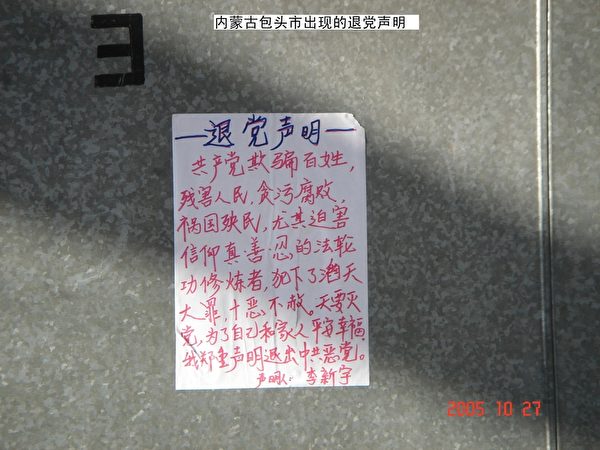 内蒙古包头市出现的退党声明
E
—退党声明—
共产党欺骗百姓,
残害人民,贪污腐败,
祸国殃民,尤其迫害
信仰真善忍的法轮
功修炼者,犯下了滔天
大罪,十恶不赦。天要灭
党,为了自己和家人平安幸福,
我郑重声明退出中共恶党。
声明人:李新宇
2005 10 27